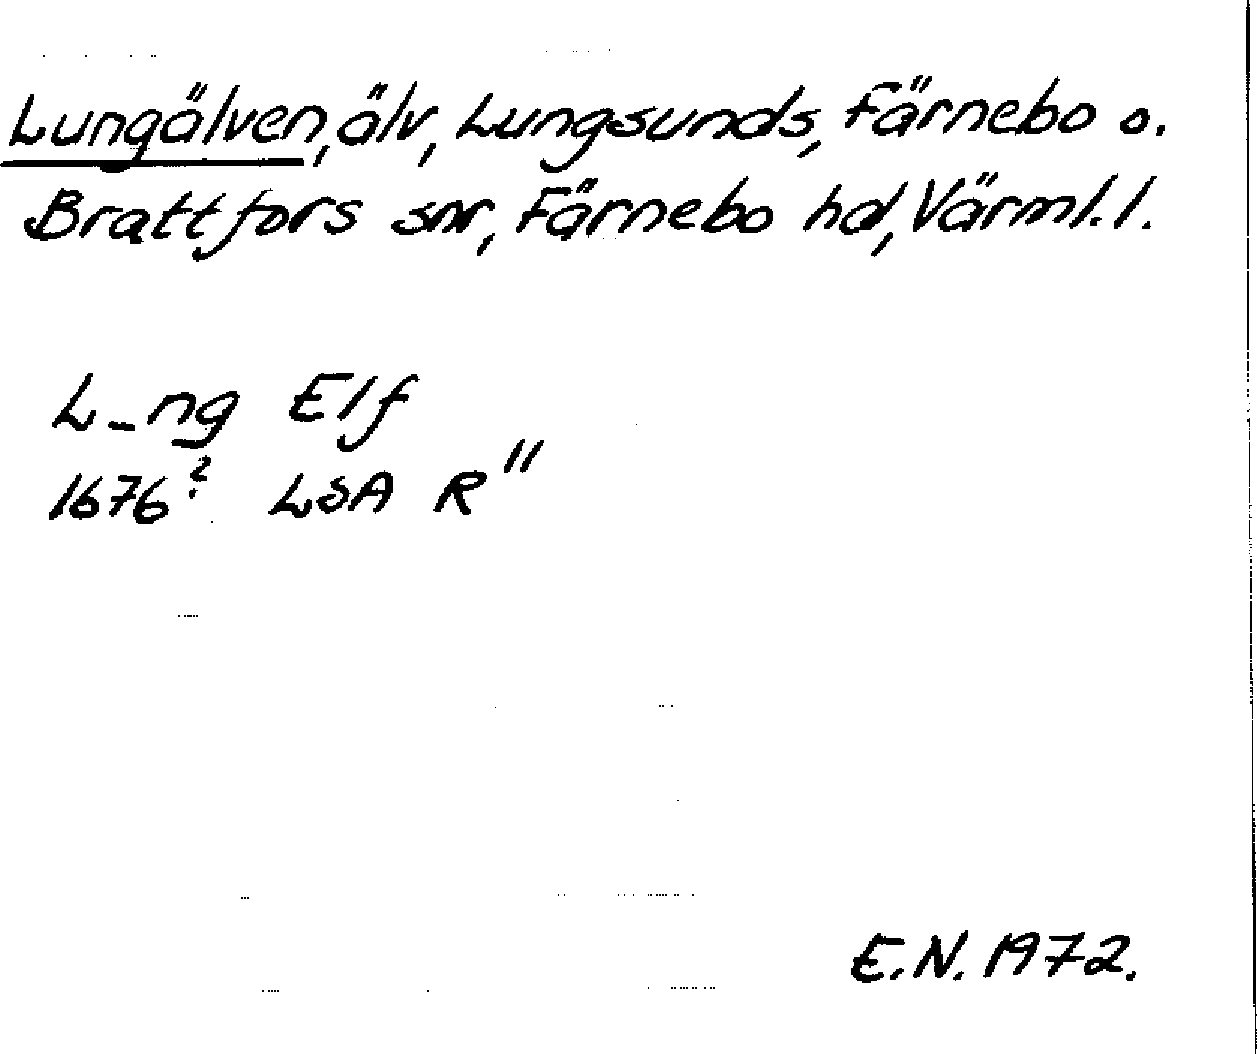 Lungälven, älv, Lungsunds, Färnebo o.
Brattfors snr, Färnebo hd, Värml. l.
L-ng Elf
1676? LSA R"
E.N. 1972.